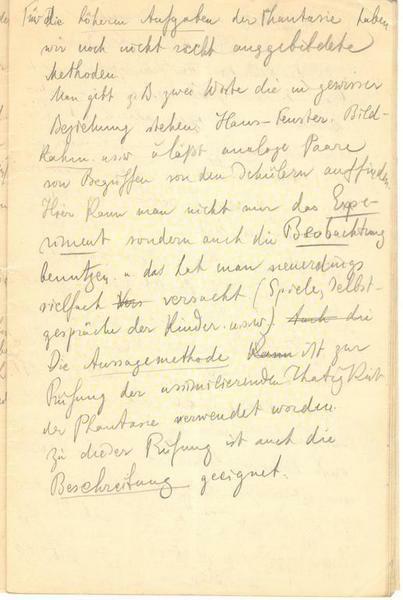 Für die höheren Aufgaben der Phantasie haben
wir noch nicht recht ausgebildete
Methoden.
Man gibt z.B. zwei Worte die in gewisser
Beziehung stehen, Haus-Fenster. Bild-
Rahm. usw u läßt analoge Paare
von Begriffen von den Schülern auffinden.
Hier kann man nicht nur das Expe-
riment sondern auch die Beobachtung
benutzen. u das hat man neuerdings
vielfach versucht (Spiele, Selbst-
gespräche der Kinder. usw.) Auch die
Die Aussagemethode kann ist zur
Prüfung der assimilierenden Thätigkeit
der Phantasie verwendet worden.
Zu dieser Prüfung ist auch die
Beschreibung geeignet.